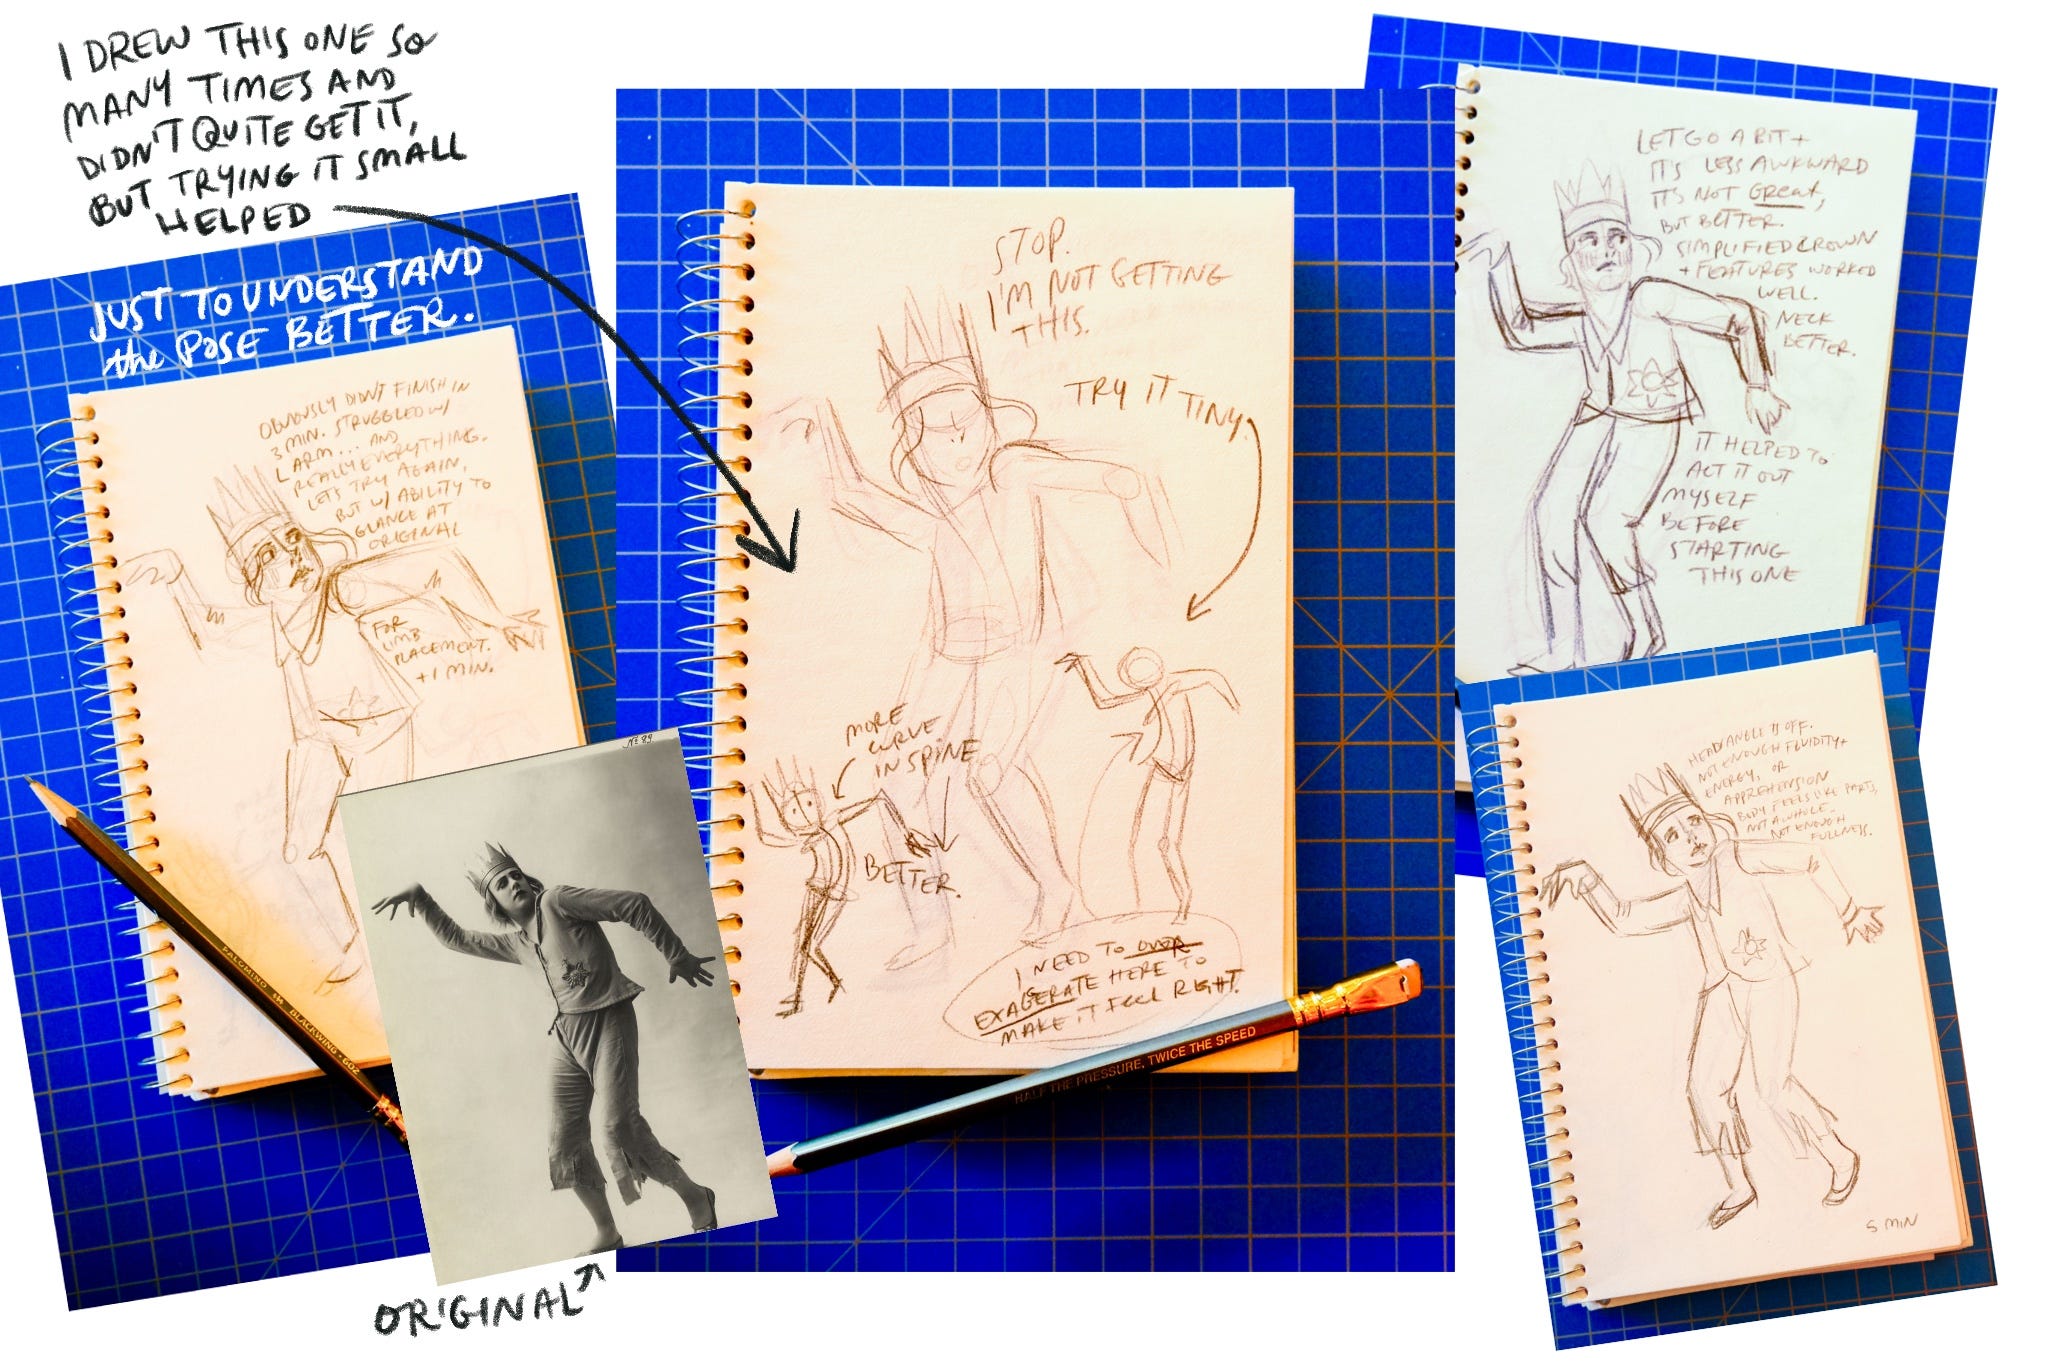 I DREW THIS ONE SO
MANY TIMES AND
DIDN'T QUITE GET IT,
BUT TRYING IT SMALL
HELPED
JUST TO UNDERSTAND
the POSE BETTER.
OBVIOUSLY DIDN'T FINISH IN
3 MIN. STRUGGLED W/
L ARM... AND
REALLY EVERYTHING.
LET'S TRY AGAIN,
BUT W/ ABILITY TO
GLANCE AT
ORIGINAL
FOR
LIMB
PLACEMENT.
+1 MIN.
PALOMINO
BLACKWING • 602
No 89
ORIGINAL
STOP.
I'M NOT GETTING
THIS.
TRY IT TINY.
MORE
CURVE
IN SPINE
BETTER.
I NEED TO OVER
EXAGERATE HERE TO
MAKE IT FEEL RIGHT.
HALF THE PRESSURE, TWICE THE SPEED
LET GO A BIT +
IT'S LESS AWKWARD
IT'S NOT GREAT,
BUT BETTER.
SIMPLIFIED CROWN
+ FEATURES WORKED
WELL.
NECK
BETTER.
IT HELPED TO
ACT IT OUT
MYSELF
BEFORE
STARTING
THIS ONE
HEAD ANGLE IS OFF.
NOT ENOUGH FLUIDITY +
ENERGY, OR
APPREHENSION
BODY FEELS LIKE PARTS,
NOT A WHOLE.
NOT ENOUGH
FULLNESS.
5 MIN